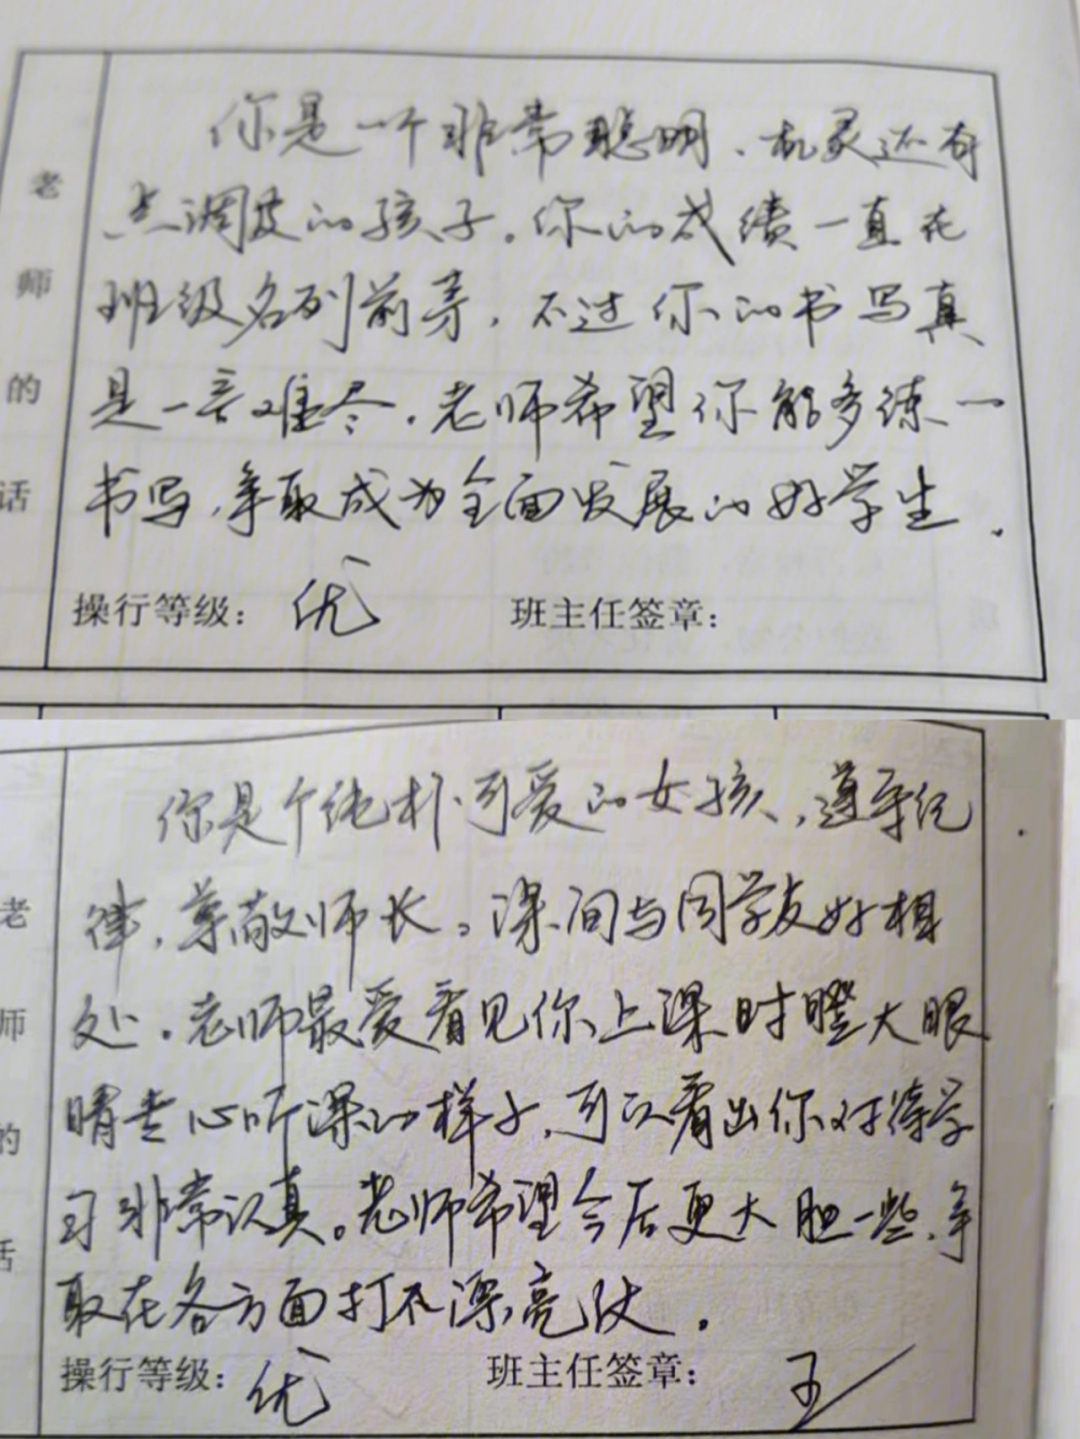 老师的话
你是一个非常聪明、机灵还有
点调皮的孩子。你的成绩一直在
班级名列前茅，不过你的书写真
是一言难尽。老师希望你能多练一
书写，争取成为全面发展的好学生。
操行等级：优 班主任签章：
老师的话
你是个纯朴可爱的女孩，遵守纪
律，尊敬师长。课间与同学友好相
处。老师最爱看见你上课时瞪大眼
睛专心听课的样子，可以看出你对待学
习非常认真。老师希望今后更大胆一些，争
取在各方面打个漂亮仗。
操行等级：优 班主任签章：王